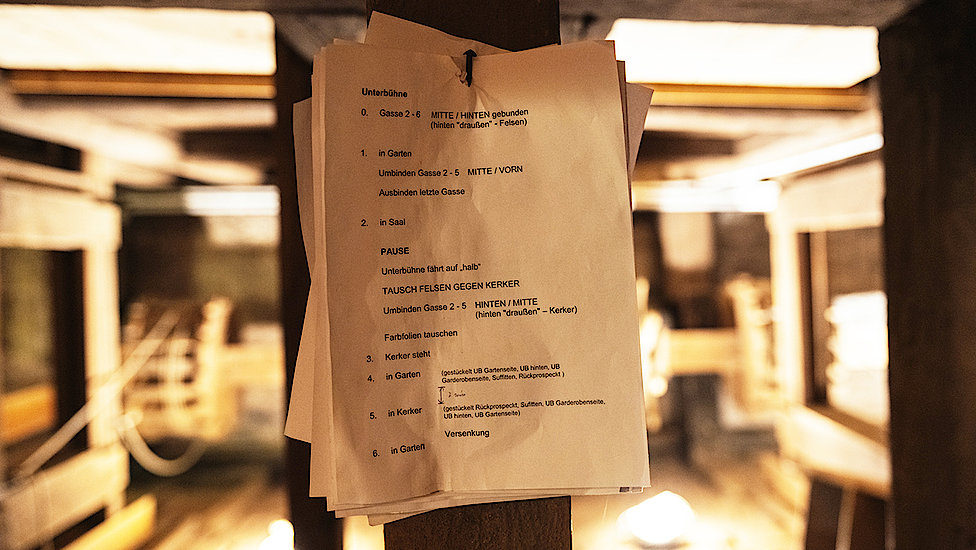 Unterbühne
0. Gasse 2 - 6 MITTE / HINTEN gebunden
(hinten "draußen" - Felsen)
1. in Garten
Umbinden Gasse 2 - 5 MITTE / VORN
Ausbinden letzte Gasse
2. in Saal
PAUSE
Unterbühne fährt auf „halb"
TAUSCH FELSEN GEGEN KERKER
Umbinden Gasse 2 - 5 HINTEN / MITTE
(hinten "draußen" – Kerker)
Farbfolien tauschen
3. Kerker steht
4. in Garten (gestückelt UB Gartenseite, UB hinten, UB
Garderobenseite, Suffitten, Rückprospeckt )
5. in Kerker (gestückelt Rückprospeckt, Sufitten, UB Garderobenseite,
UB hinten, UB Gartenseite)
Versenkung
6. in Garten